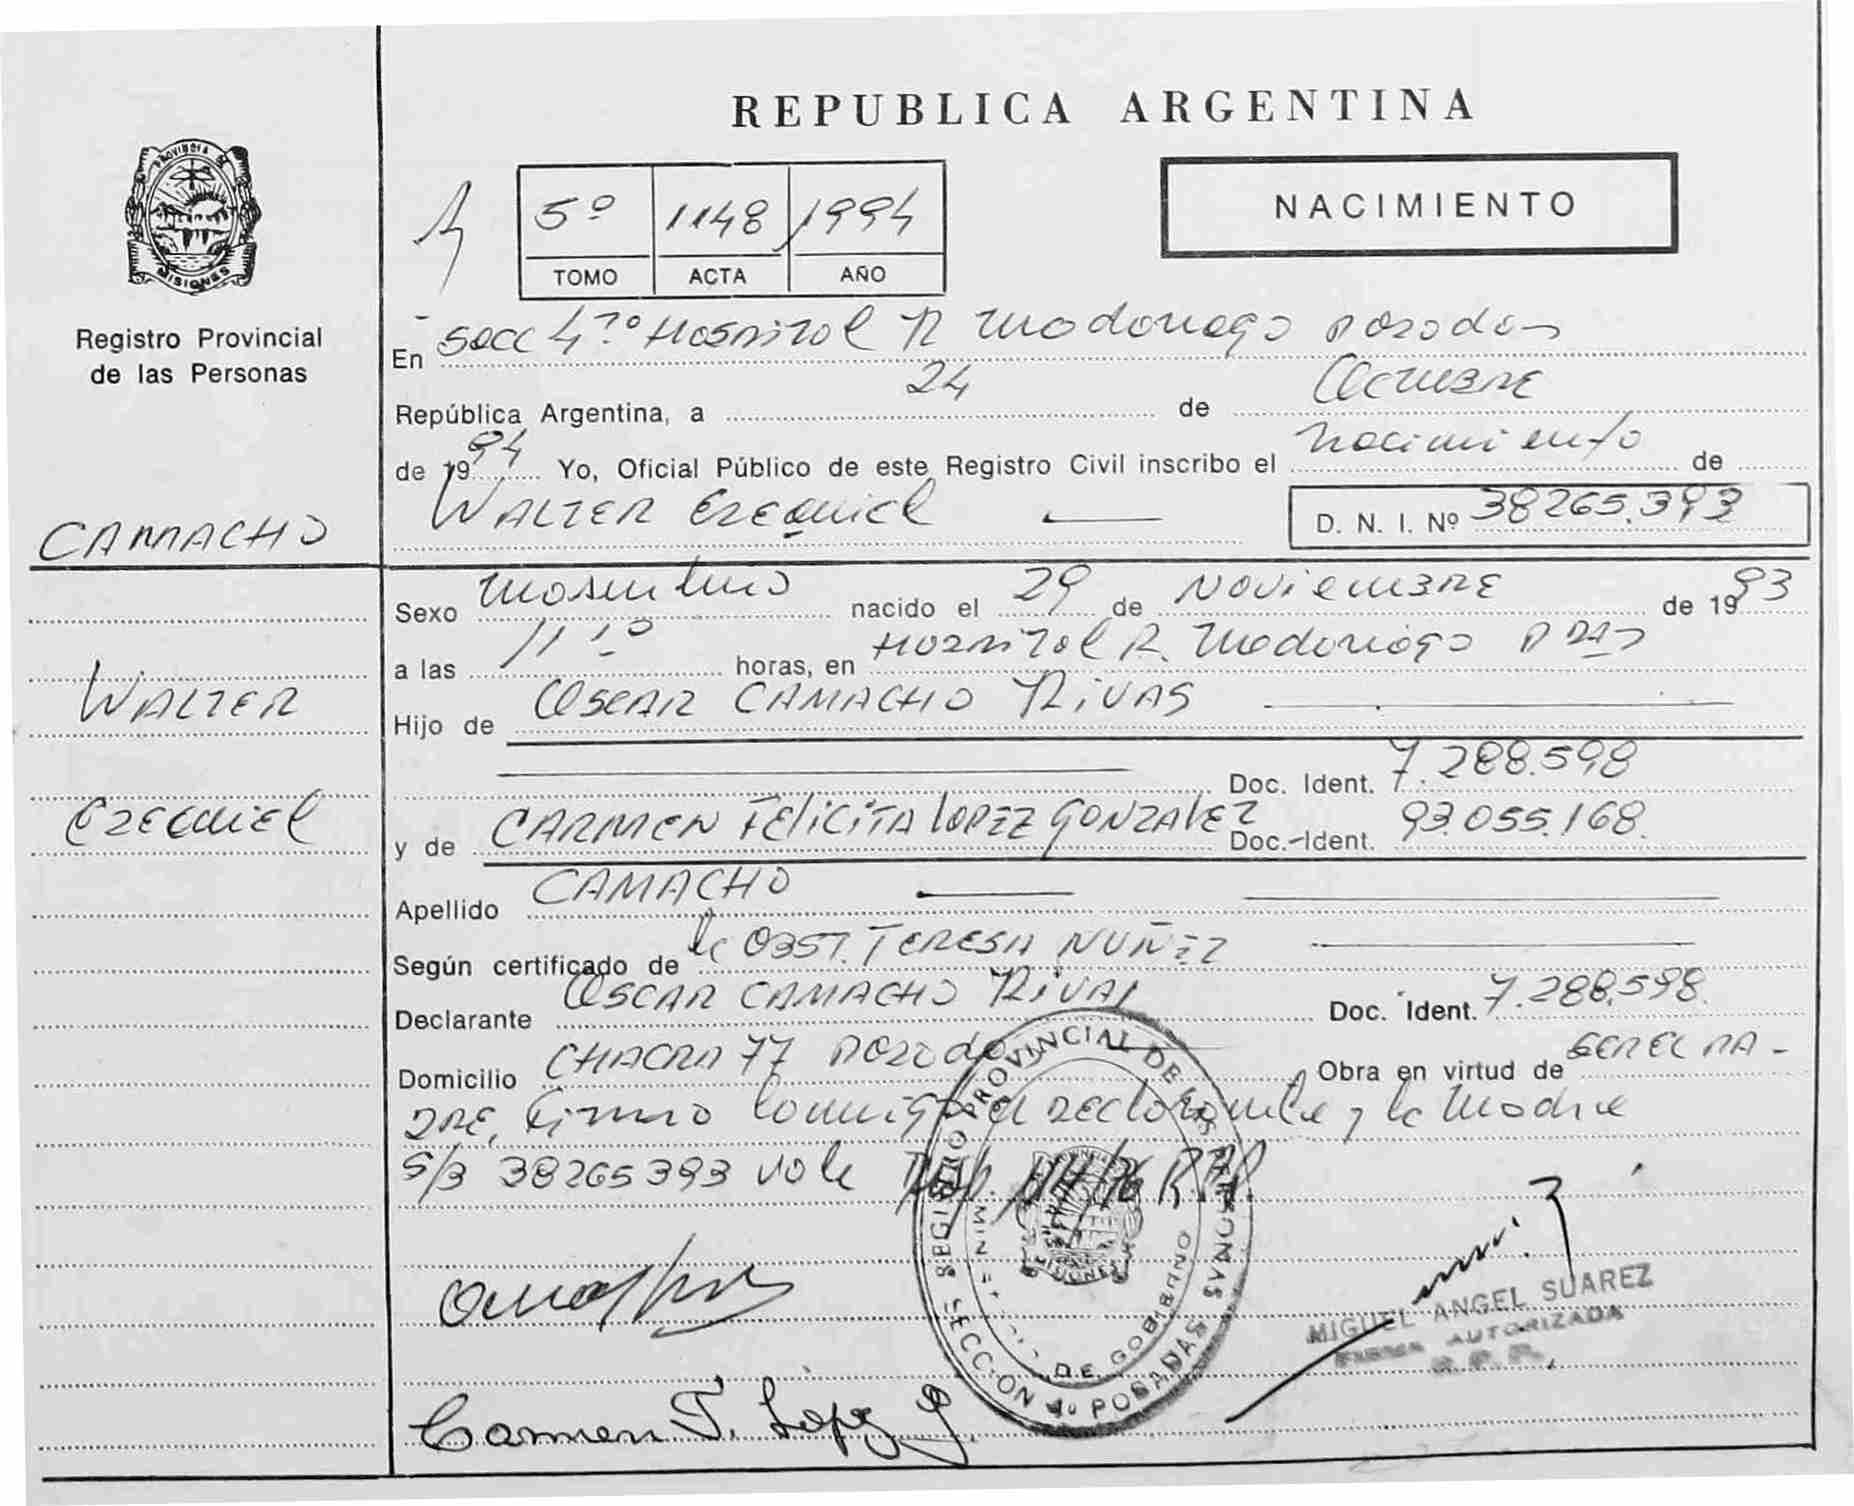 REPUBLICA ARGENTINA
PROVINCIA DE
MISIONES
Registro Provincial
de las Personas
5º 1148 1994
TOMO ACTA AÑO
NACIMIENTO
En Secc 4ta Hospital R Madariaga Posadas
República Argentina, a 24 de Octubre
de 1994 Yo, Oficial Público de este Registro Civil inscribo el nacimiento de
WALTER EZEQUIEL
D. N. I. Nº 38265.393
CAMACHO
WALTER
EZEQUIEL
Sexo masculino nacido el 29 de NOVIEMBRE de 1993
a las 11 horas, en Hospital R. Madariaga Pdas
Hijo de OSCAR CAMACHO RIVAS
Doc. Ident. 7.288.598
y de CARMEN FELICITA LOPEZ GONZALEZ Doc.-Ident. 93.055.168.
Apellido CAMACHO
Según certificado de la OBST. TERESA NUÑEZ
Declarante OSCAR CAMACHO RIVAS Doc. Ident. 7.288.598.
Domicilio CHACRA 77 Posadas Obra en virtud de SER EL PA-
DRE, firma conmigo el declarante y la Madre
S/B 38265393 vale
REGISTRO PROVINCIAL DE LAS PERSONAS
DE GOBIERNO
SECCION 4ta POSADAS
MIGUEL ANGEL SUAREZ
FIRMA AUTORIZADA
R. P. P.
Carmen F. López G.